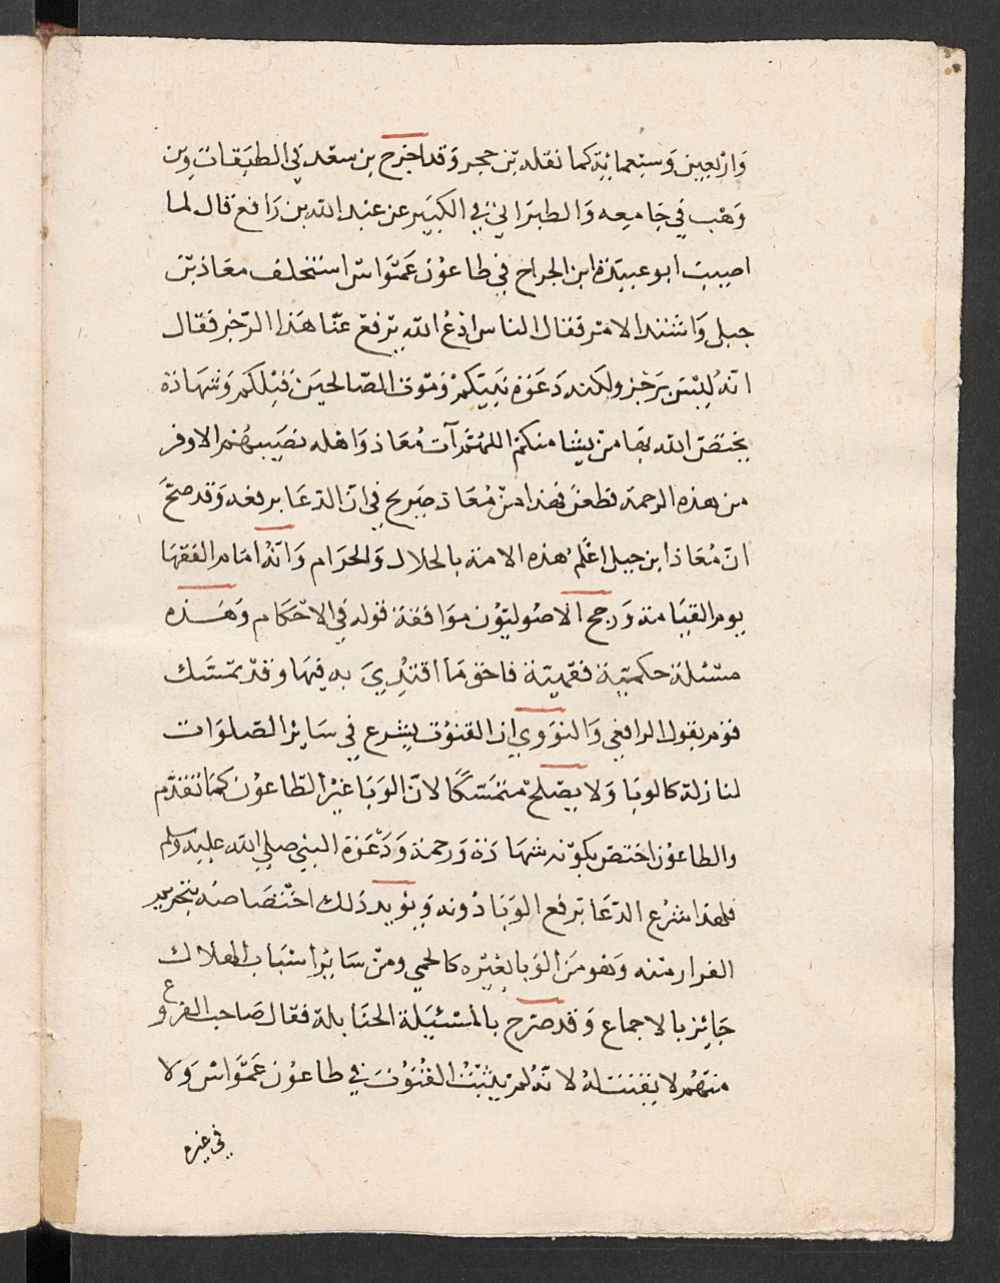 وَاربَعِين وَسبعمائِة كما نقله بن حجر وَقد اخرج بن سعد في الطبَقات وبن
وَهْب في جَامعِه وَالطبرَاني في الكبَير عن عبد الله بن رَافع قال لما
اصيبت ابو عبيدة ابن الجراح في طاعوْن عَمَوَاس استخلف معَاذ بن
جبل وَاشتد الامر فقال الناس ادعُ الله يرفع عنّا هَذا الرّجز فقال
انه لَيْسَ برَجْز ولكنه دَعوَة نبَيّكمْ وَمَوت الصّالحيَن قبْلكم وَشهَادة
يختصّ الله بهَا منْ يشا منكمْ اللهُمّ آت مُعَاذ وَاهله نصَيبهُم الاوفر
من هذه الرحمة فطعنَ فهذا منْ مُعَاذ صَريح في انّ الدعَا برفعه وَقد صحّ
انّ مُعَاذا بن جبل اعْلم هذه الامة بالحلال وَالحرَام وَانّه امَام الفقهَا
يوم القيَامة وَرجح الاصُوليّون موَافقة قوله في الاحْكام وَهَذه
مسْئلة حكميّة فقهيّة فاحَق مَا اقتُدِيَ به فيهَا وقدْ تمسّك
قوم بقول الرافعي وَالنوَوي ان القنوُت يشرع في سَايْر الصّلوَات
لنازلة كالوبَا وَلا يصْلح متمَسّكًا لانّ الوَبَا غيْر الطّاعوْن كمَا تقدّم
والطاعوُن اختصّ بكوْنه شهَادَة وَرحمة وَدَعْوَة النبي صلي الله عليه وسلم
فلهذا شرُع الدّعَا برفع الوَبَا دُونه وَيؤيد ذَلك اختْصَاصه بتحريم
الفرار منْه وَهو منَ الوَبا بغيْره كالحمي ومنْ سَايْر اسْبَاب الهلاك
جَائِز بالاجماع وَقد صرّح بالمسْئيَلة الحنَابلة فقال صَاحب الفروع
منهُم لا يقنتَ لهُ لانّه لم يثبتْ القنوُت في طاعوُن عَموَاس وَلا
في غيره